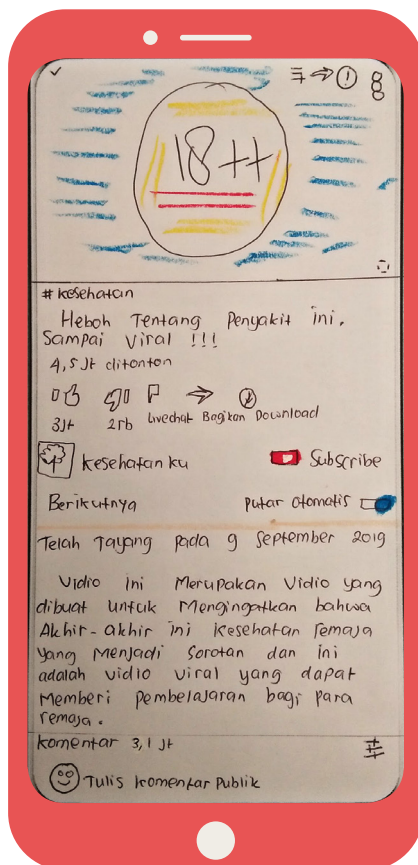 18++
#kesehatan
Heboh Tentang Penyakit ini.
Sampai Viral !!!
4,5 Jt ditonton
3Jt 2rb Livechat Bagikan Download
kesehatanku Subscribe
Berikutnya Putar Otomatis
Telah Tayang pada 9 September 2019
Vidio ini Merupakan Vidio yang
dibuat untuk Mengingatkan bahwa
Akhir-akhir ini Kesehatan remaja
yang Menjadi Sorotan dan ini
adalah vidio viral yang dapat
Memberi pembelajaran bagi para
remaja.
Komentar 3,1 Jt
Tulis komentar Publik